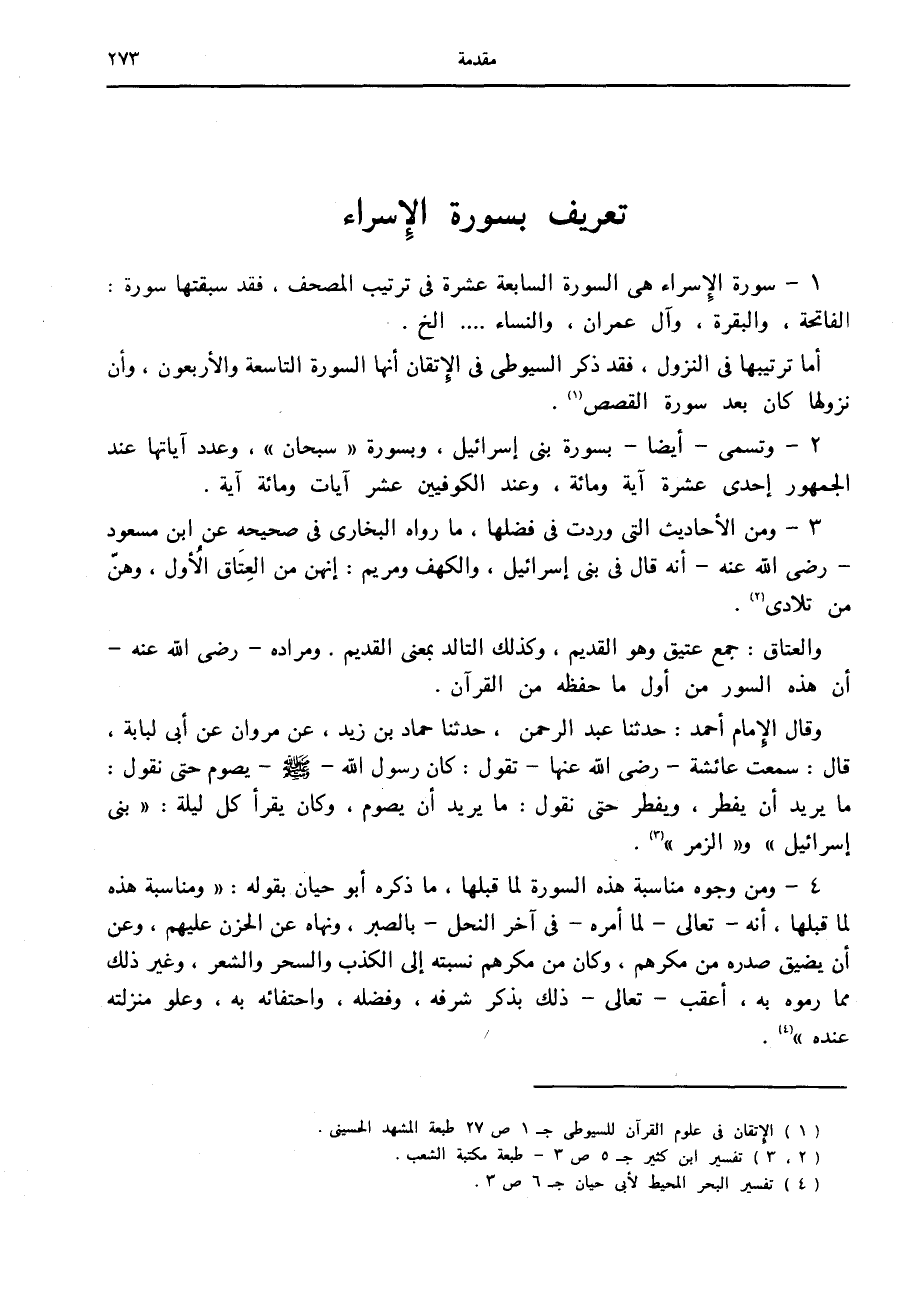 مقدمة ٢٧٣
تعريف بسورة الإسراء
١ - سورة الإسراء هى السورة السابعة عشرة فى ترتيب المصحف ، فقد سبقتها سورة :
الفاتحة ، والبقرة ، وآل عمران ، والنساء .... الخ .
أما ترتيبها فى النزول ، فقد ذكر السيوطى فى الإتقان أنها السورة التاسعة والأربعون ، وأن
نزولها كان بعد سورة القصص(١) .
٢ - وتسمى - أيضا - بسورة بنى إسرائيل ، وبسورة « سبحان » ، وعدد آياتها عند
الجمهور إحدى عشرة آية ومائة ، وعند الكوفيين عشر آيات ومائة آية .
٣ - ومن الأحاديث التى وردت فى فضلها ، ما رواه البخارى فى صحيحه عن ابن مسعود
- رضى الله عنه - أنه قال فى بنى إسرائيل ، والكهف ومريم : إنهن من العِتَاق الُأول ، وهنّ
من تلادى(٢) .
والعتاق : جمع عتيق وهو القديم ، وكذلك التالد بمعنى القديم . ومراده - رضى الله عنه -
أن هذه السور من أول ما حفظه من القرآن .
وقال الإمام أحمد : حدثنا عبد الرحمن ، حدثنا حماد بن زيد ، عن مروان عن أبى لبابة ،
قال : سمعت عائشة - رضى الله عنها - تقول : كان رسول الله - ﷺ - يصوم حتى نقول :
ما يريد أن يفطر ، ويفطر حتى نقول : ما يريد أن يصوم ، وكان يقرأ كل ليلة : « بنى
إسرائيل » و« الزمر »(٣) .
٤ - ومن وجوه مناسبة هذه السورة لما قبلها ، ما ذكره أبو حيان بقوله : « ومناسبة هذه
لما قبلها ، أنه - تعالى - لما أمره - فى آخر النحل - بالصبر ، ونهاه عن الحزن عليهم ، وعن
أن يضيق صدره من مكرهم ، وكان من مكرهم نسبته إلى الكذب والسحر والشعر ، وغير ذلك
مما رموه به ، أعقب - تعالى - ذلك بذكر شرفه ، وفضله ، واحتفائه به ، وعلو منزلته
عنده »(٤) .
( ١ ) الإتقان فى علوم القرآن للسيوطى جـ ١ ص ٢٧ طبعة المشهد الحسينى .
( ٢ ، ٣ ) تفسير ابن كثير جـ ٥ ص ٣ - طبعة مكتبة الشعب .
( ٤ ) تفسير البحر المحيط لأبى حيان جـ ٦ ص ٣ .